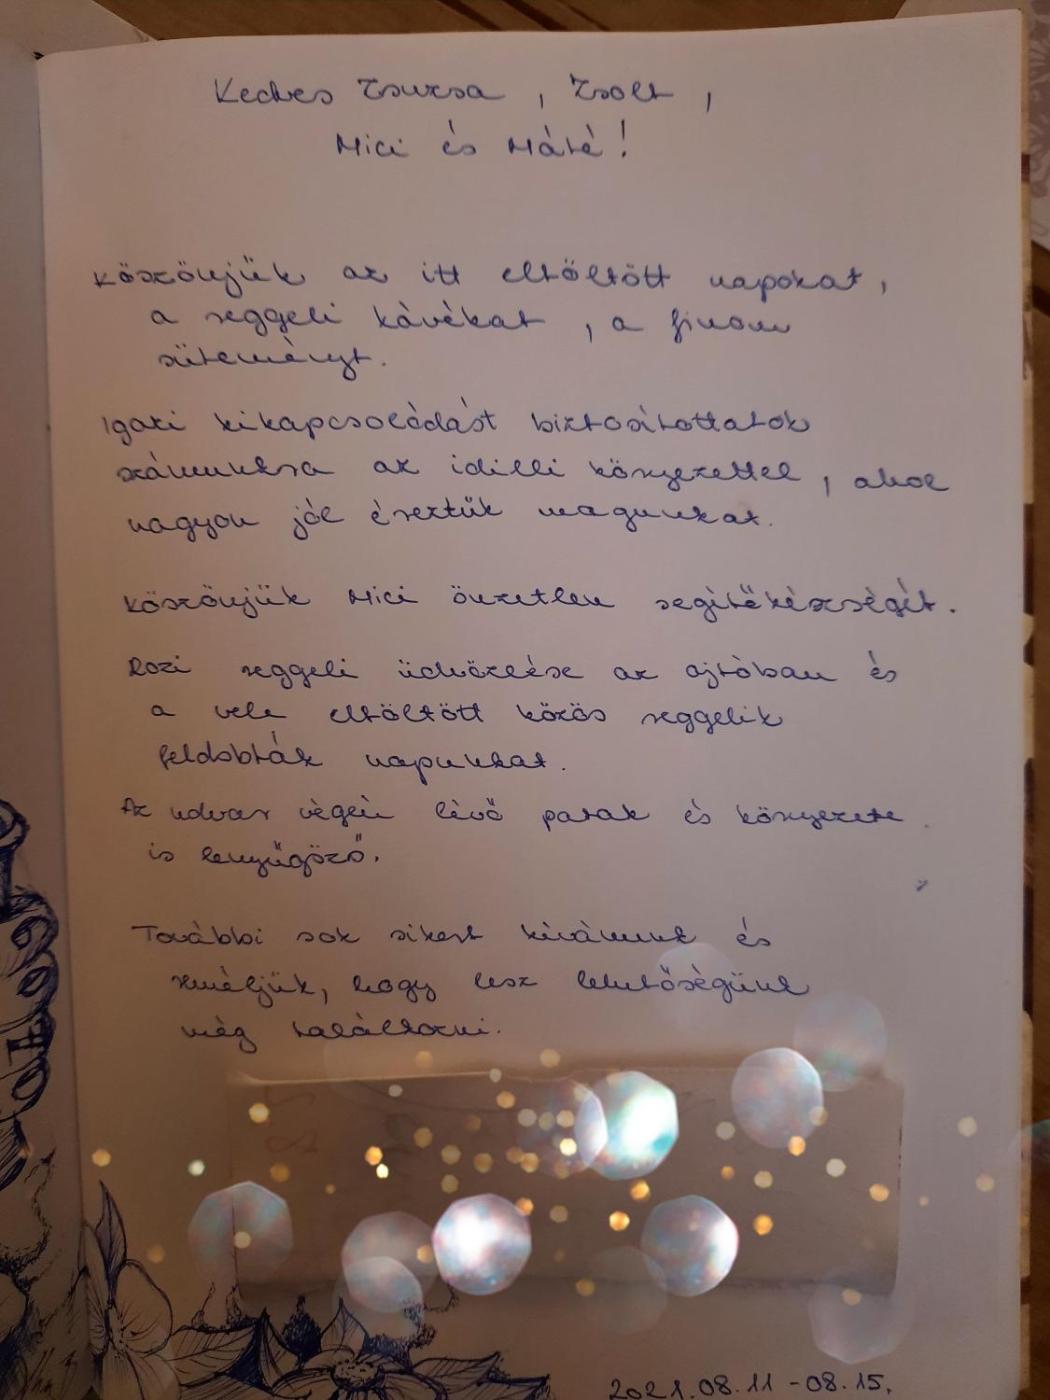 Kedves Zsuzsa, Zsolt,
Mici és Máté!
Köszönjük az itt eltöltött napokat,
a reggeli kávékat, a finom
süteményt.
Igazi kikapcsolódást biztosítottatok
számunkra az idilli környezettel, ahol
nagyon jól éreztük magunkat.
Köszönjük Mici önzetlen segítőkészségét.
Rozi reggeli üdvözlése az ajtóban és
a vele eltöltött közös reggelik
feldobták napunkat.
Az udvar végén lévő patak és környezete
is lenyűgöző.
További sok sikert kívánunk és
reméljük, hogy lesz lehetőségünk
még találkozni.
2021.08.11 - 08.15.